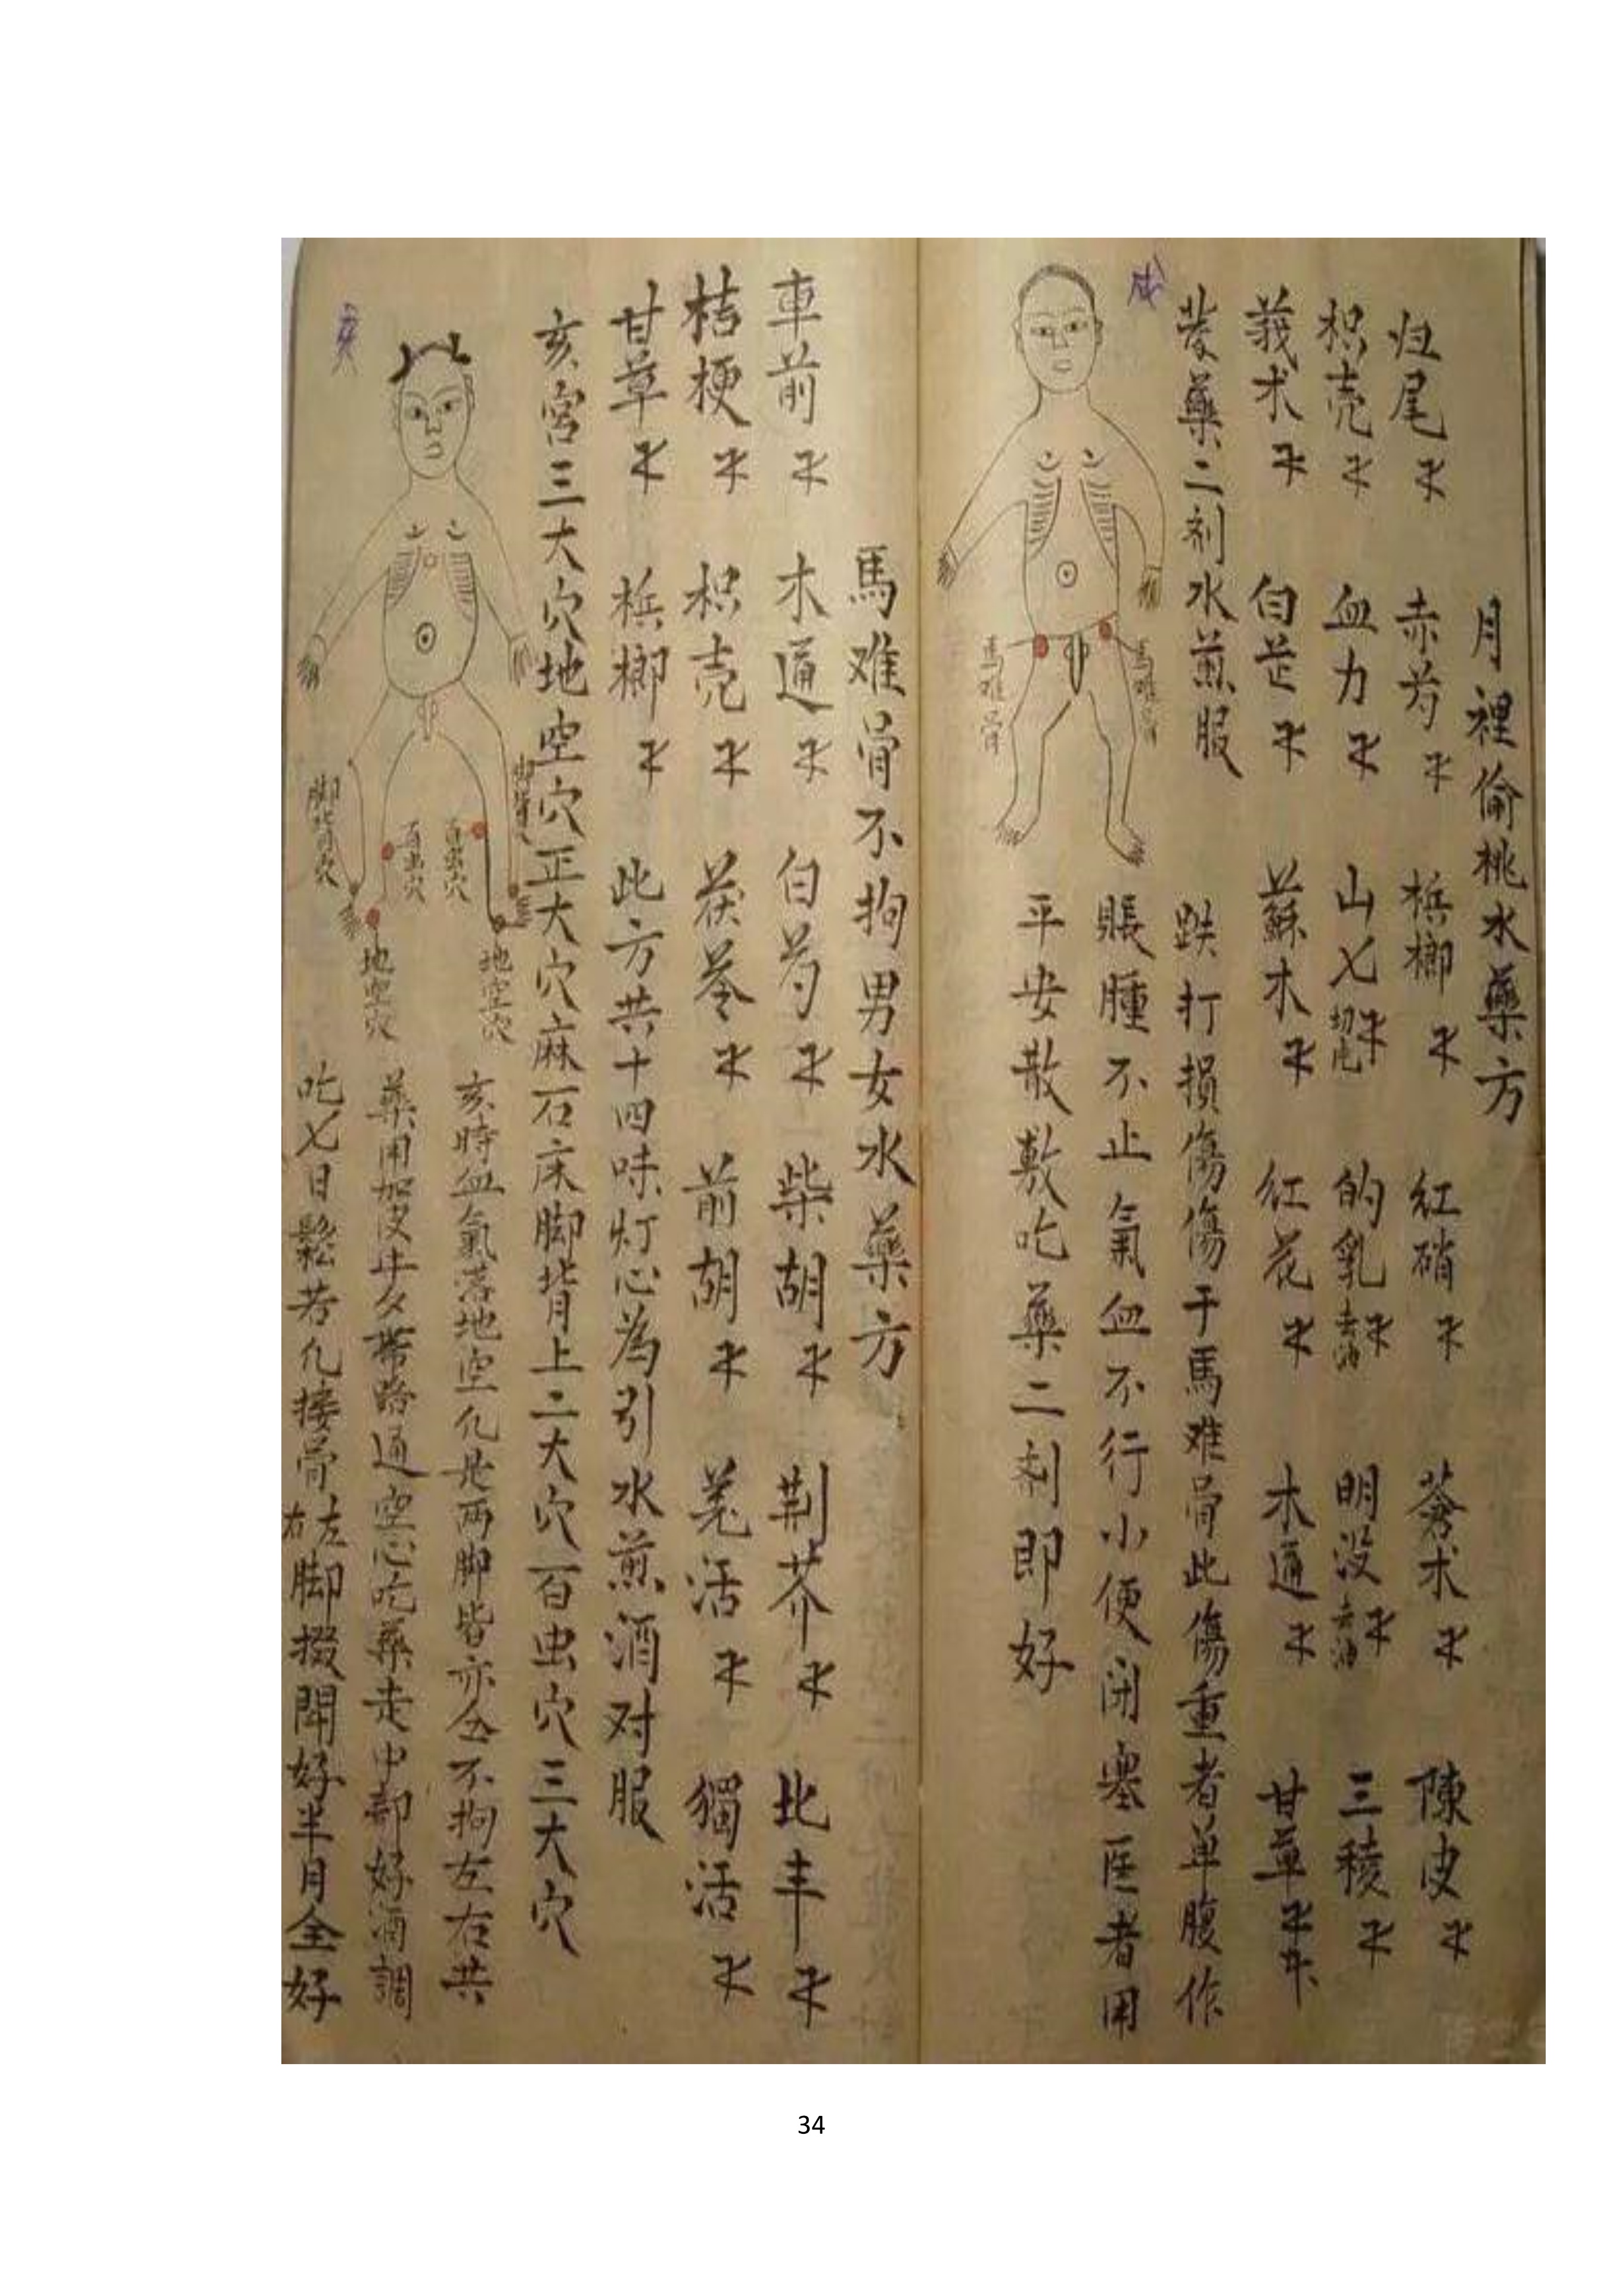 月裡偷桃水藥方
归尾 赤芍 梹榔 紅硝 蒼术 陳皮
枳壳 血力 山乂 的乳去油 明没去油 三稜
莪术 白芷 蘇木 紅花 木通 甘草
藥二剂水煎服
戍
馬难骨
馬难骨
跌打損傷傷于馬难骨此傷重者单腹作
賬腫不止氣血不行小便闭塞医者用
平安散敷吃藥二剂即好
馬难骨不拘男女水藥方
車前 木通 白芍 柴胡 荆芥
桔梗 枳壳 茯苓 前胡 羌活 獨活
甘草 梹榔 此方共十四味灯心為引水煎酒对服
亥宮三大穴地空穴正大穴麻石床脚背上二大穴百虫穴三大穴
亥
脚背穴
百虫穴
百虫穴
地空穴
地空穴
亥時血氣落地空 是两脚皆亦 不拘左右共
藥用加皮 帶路通空心吃藥走中都好酒調
吃 日鬆若 接骨左右脚 開好半月全好
34